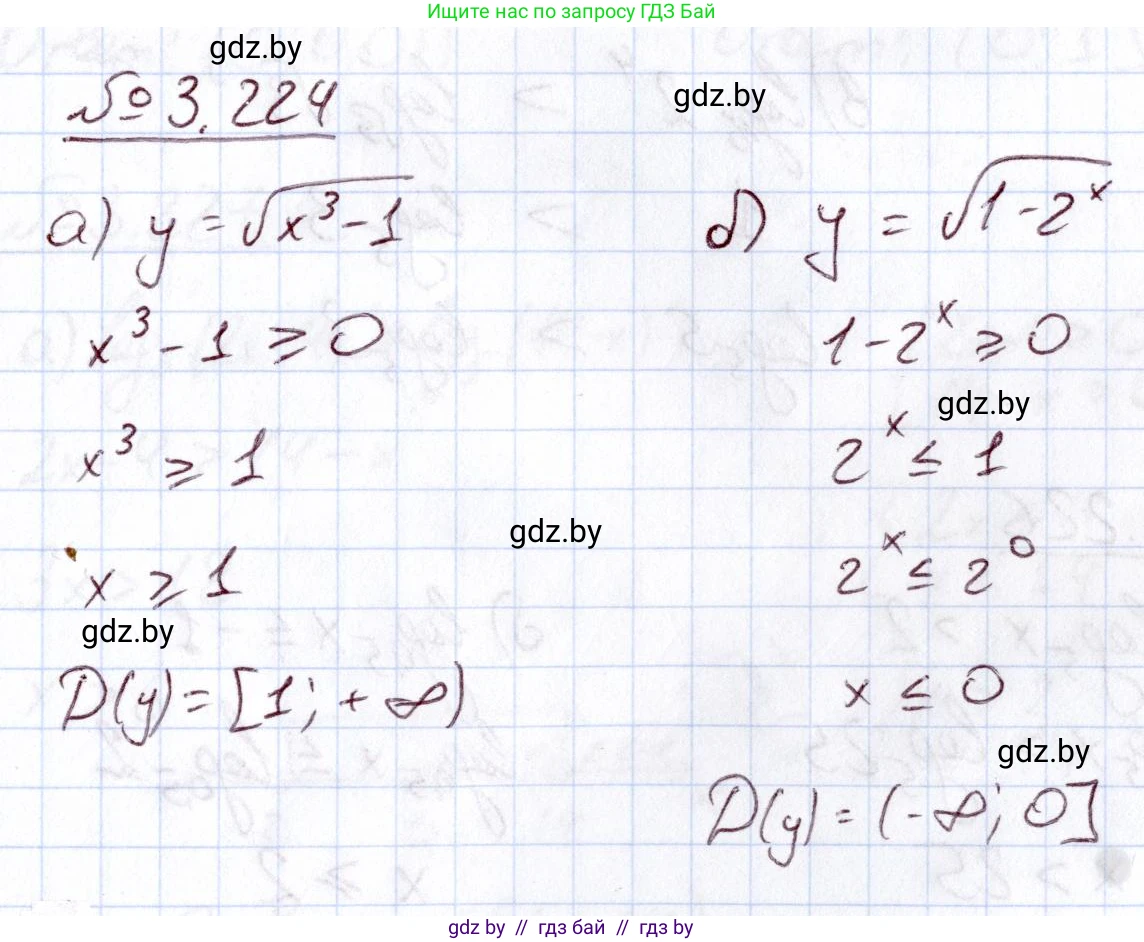 Ищите нас по запросу ГДЗ Бай
gdz.by
№ 3.224
gdz.by
а) y = √(x³ - 1)
x³ - 1 ≥ 0
x³ ≥ 1
x ≥ 1
gdz.by
D(y) = [1; +∞)
б) y = √(1 - 2ˣ)
1 - 2ˣ ≥ 0
gdz.by
2ˣ ≤ 1
gdz.by
2ˣ ≤ 2⁰
x ≤ 0
gdz.by
D(y) = (-∞; 0]
gdz by // гдз бай // гдз by